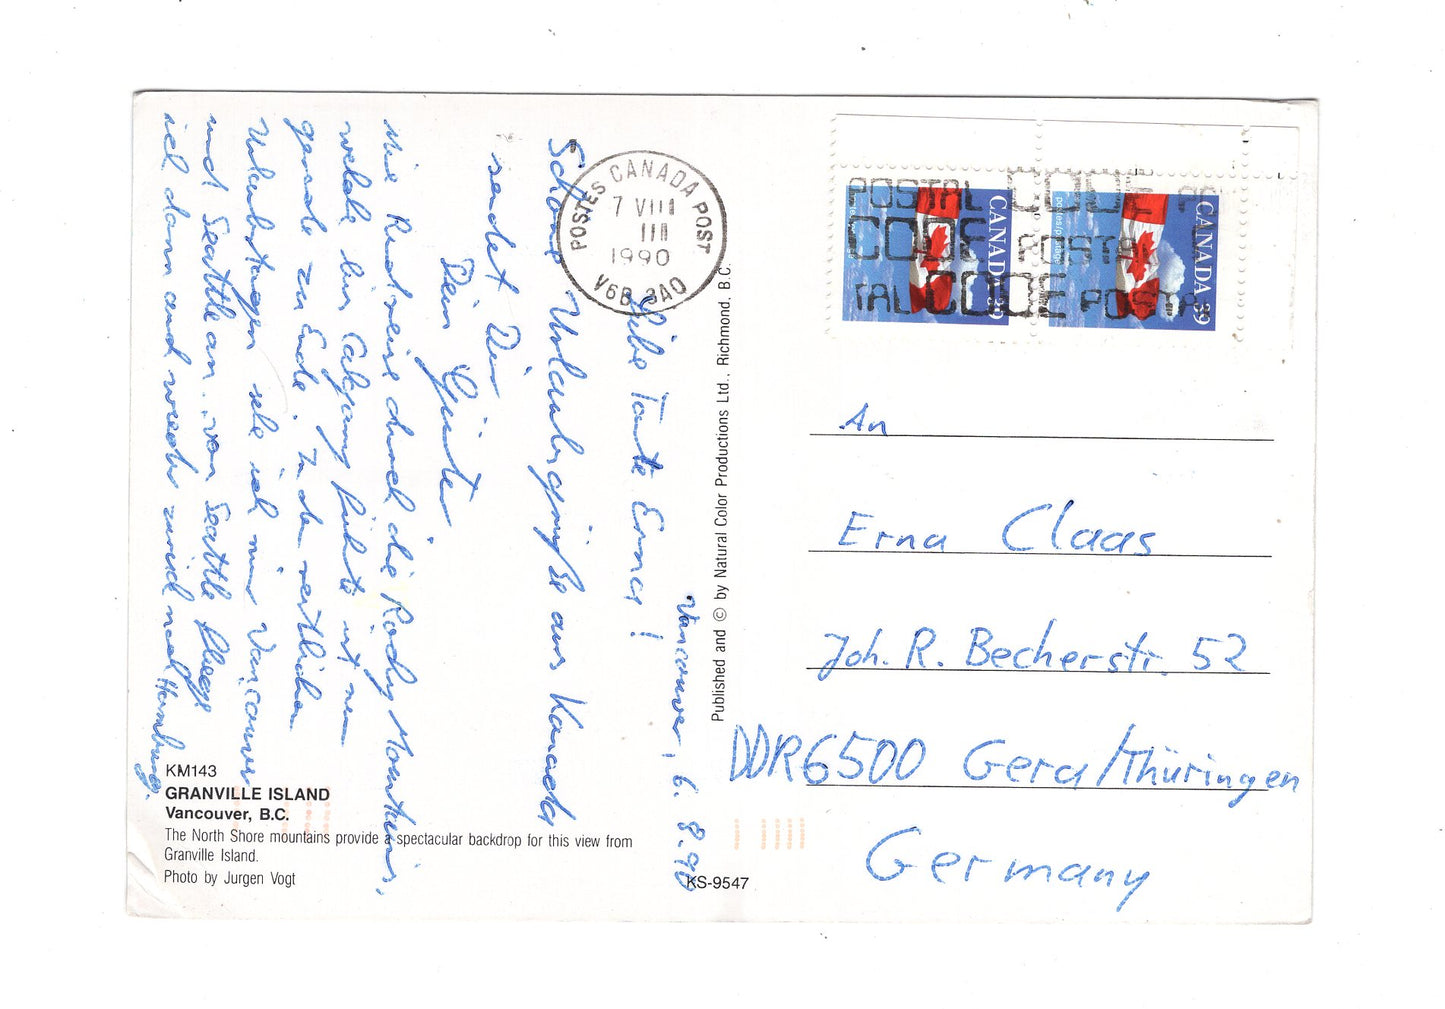 Vancouver, 6. 8. 90
Liebe Tante Erna!
Schöne Urlaubsgrüße aus Kanada
sendet Dir
Dein Günter
Die Rundreise durch die Rocky Mountains,
welche in Calgary führte ist nun
gerade zu Ende. In den restlichen
Urlaubstagen sehe ich mir Vancouver
und Seattle an. von Seattle fliege
ich dann auch wieder zurück nach Hamburg.
KM143
GRANVILLE ISLAND
Vancouver, B.C.
The North Shore mountains provide a spectacular backdrop for this view from
Granville Island.
Photo by Jurgen Vogt
KS-9547
Published and © by Natural Color Productions Ltd., Richmond, B.C.
POSTES CANADA POST
7 VIII
1990
V6B 3A0
CANADA 39
postes/postage
CANADA 39
POSTAL CODE
CODE POSTAL
POSTAL CODE POSTAL
An
Erna Claas
Joh. R. Becherstr. 52
DDR 6500 Gera/Thüringen
Germany